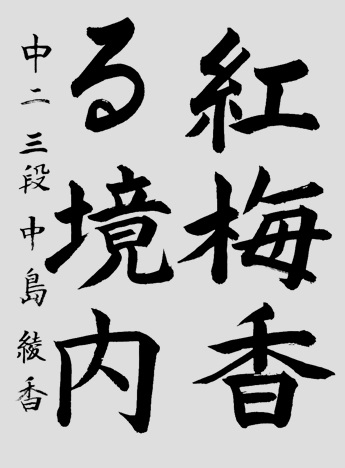 紅梅香
る境内
中二三段中島綾香